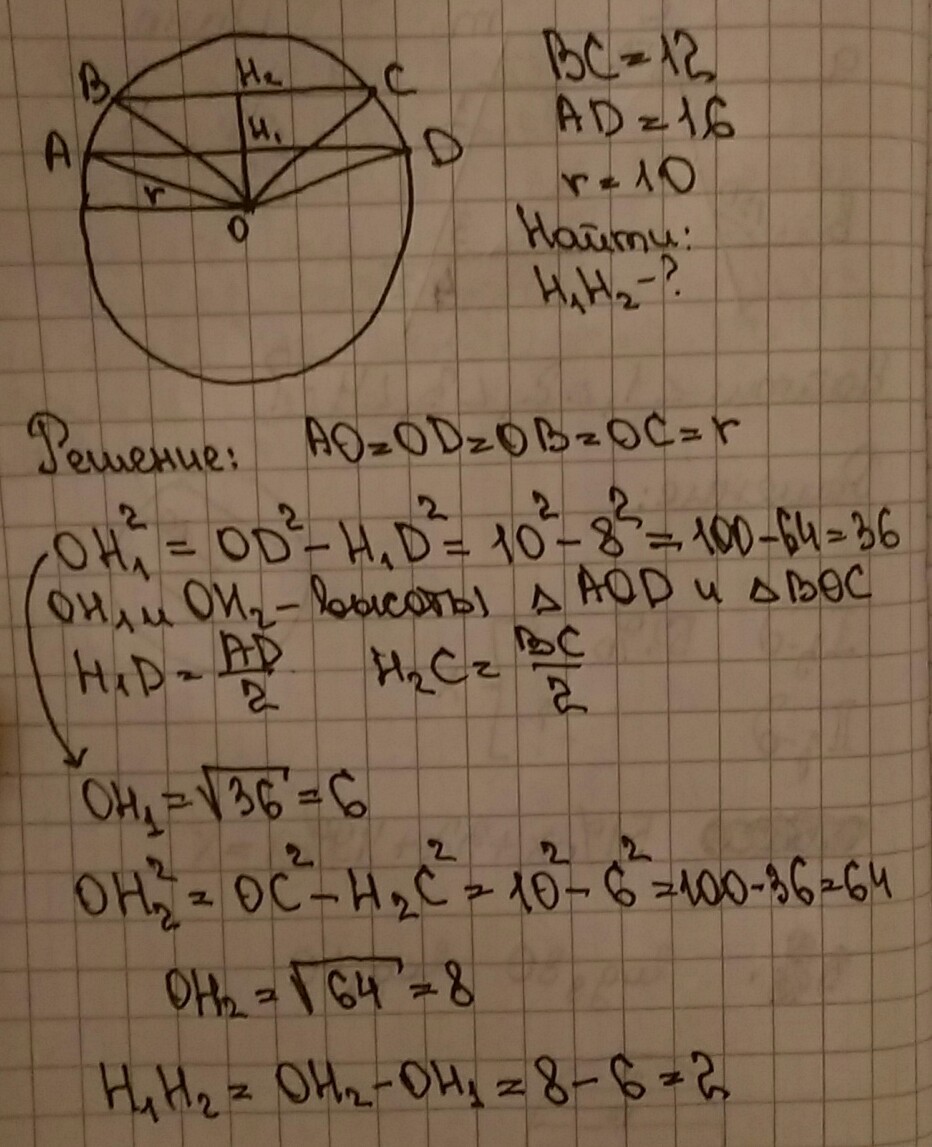 B H₂ C
A H₁ D
r
O
BC = 12
AD = 16
r = 10
Найти:
H₁H₂ - ?
Решение: AO = OD = OB = OC = r
OH₁² = OD² - H₁D² = 10² - 8² = 100 - 64 = 36
OH₁ и OH₂ - высоты △AOD и △BOC
H₁D = AD/2 H₂C = BC/2
OH₁ = √36 = 6
OH₂² = OC² - H₂C² = 10² - 6² = 100 - 36 = 64
OH₂ = √64 = 8
H₁H₂ = OH₂ - OH₁ = 8 - 6 = 2